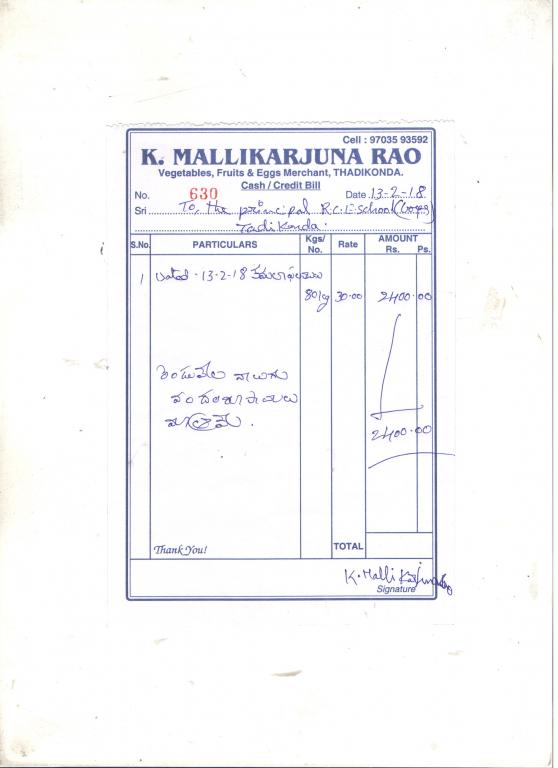 Cell : 97035 93592
K. MALLIKARJUNA RAO
Vegetables, Fruits & Eggs Merchant, THADIKONDA.
Cash / Credit Bill
No. 630 Date 13-2-18
Sri To, the principal R.C.E-School (Boys)
Tadikonda.
S.No. PARTICULARS Kgs/No. Rate AMOUNT Rs. Ps.
1 Dated - 13-2-18 కమలాఫలములు
80kg 30.00 2400.00
రెండువేల నాలుగు
వందల రూపాయలు
మాత్రమే.
2400.00
Thank You! TOTAL
K. Malli Karjuna Rao
Signature